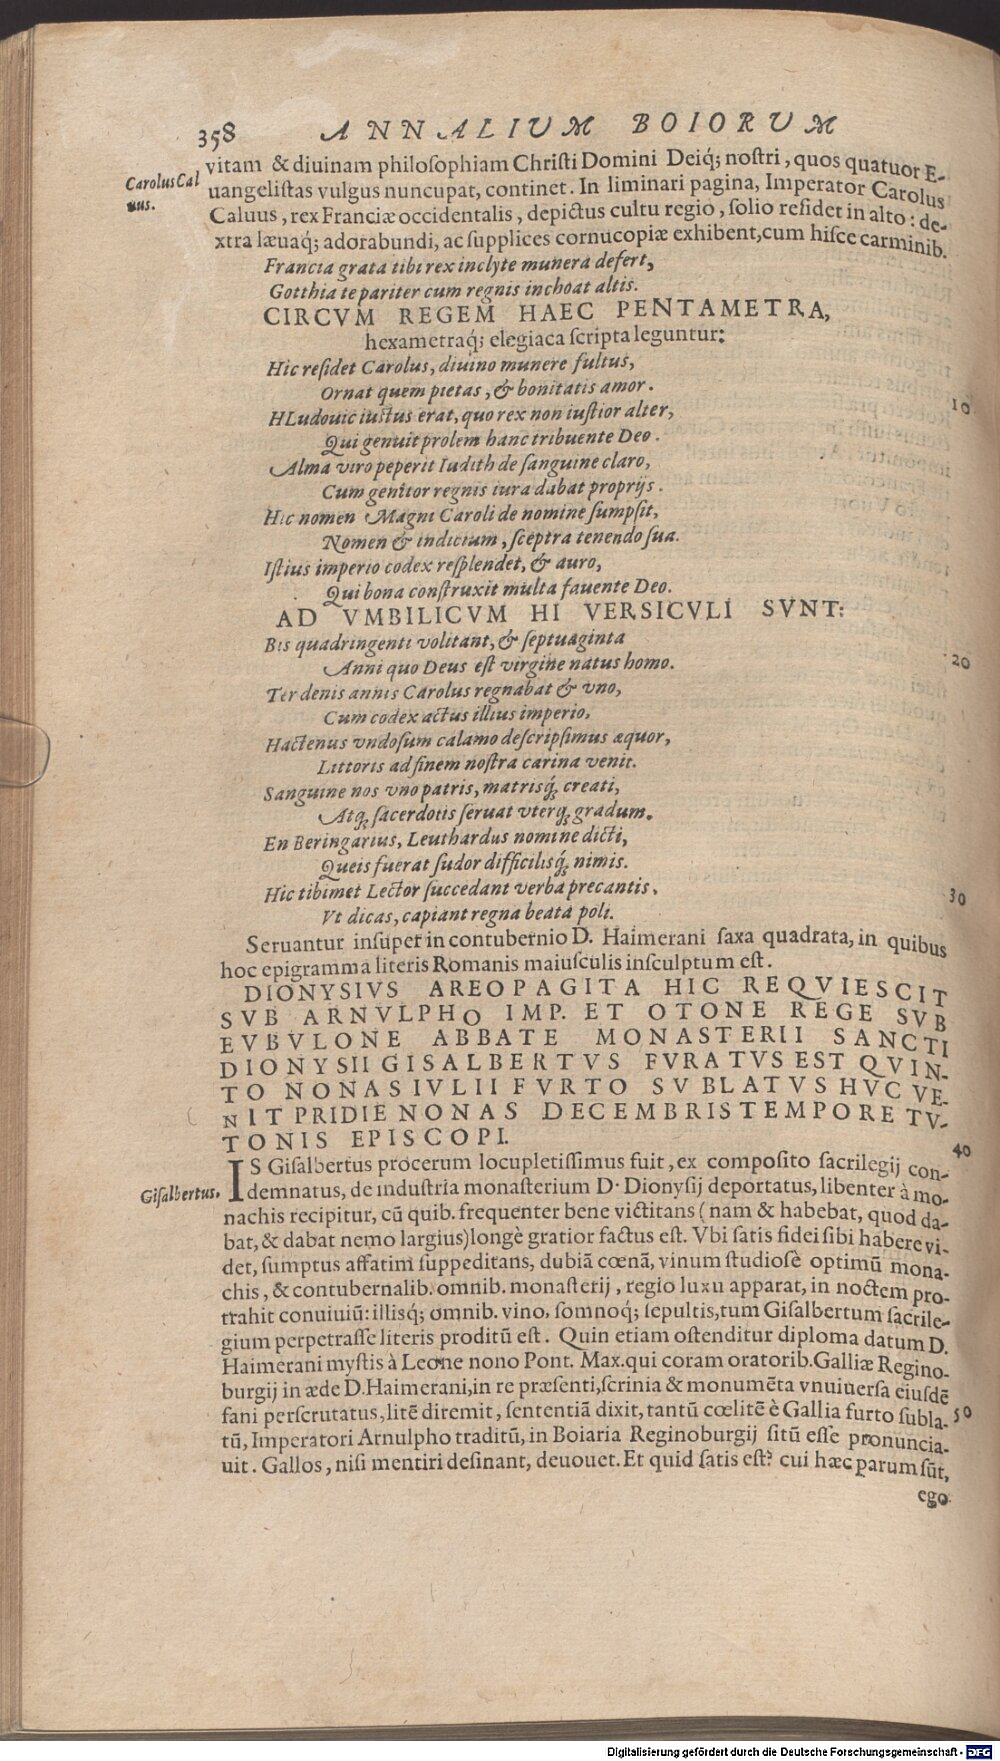 358 ANNALIUM BOIORUM
vitam & diuinam philosophiam Christi Domini Deiq́; nostri, quos quatuor E-
Carolus Cal
uus.
uangelistas vulgus nuncupat, continet. In liminari pagina, Imperator Carolus
Caluus, rex Franciæ occidentalis, depictus cultu regio, solio residet in alto: de-
xtra læuaq́; adorabundi, ac supplices cornucopiæ exhibent, cum hisce carminib.
Francia grata tibi rex inclyte munera defert,
Gotthia te pariter cum regnis inchoat altis.
CIRCVM REGEM HAEC PENTAMETRA,
hexametraq́; elegiaca scripta leguntur:
Hic residet Carolus, diuino munere fultus,
Ornat quem pietas, & bonitatis amor.
10
HLudouic iustus erat, quo rex non iustior alter,
Qui genuit prolem hanc tribuente Deo.
Alma viro peperit Iudith de sanguine claro,
Cum genitor regnis iura dabat proprijs.
Hic nomen Magni Caroli de nomine sumpsit,
Nomen & indicium, sceptra tenendo sua.
Istius imperio codex resplendet, & auro,
Qui bona construxit multa fauente Deo.
AD VMBILICVM HI VERSICVLI SVNT:
Bis quadringenti volitant, & septuaginta
Anni quo Deus est virgine natus homo.
20
Ter denis annis Carolus regnabat & vno,
Cum codex actus illius imperio,
Hactenus vndosum calamo descripsimus æquor,
Littoris ad finem nostra carina venit.
Sanguine nos vno patris, matrisq́; creati,
Atq; sacerdotis seruat vterq; gradum.
En Beringarius, Leuthardus nomine dicti,
Queis fuerat sudor difficilisq́; nimis.
Hic tibimet Lector succedant verba precantis,
30
Vt dicas, capiant regna beata poli.
Seruantur insuper in contubernio D. Haimerani saxa quadrata, in quibus
hoc epigramma literis Romanis maiusculis insculptum est.
DIONYSIVS AREOPAGITA HIC REQVIESCIT
SVB ARNVLPHO IMP. ET OTONE REGE SVB
EVBVLONE ABBATE MONASTERII SANCTI
DIONYSII GISALBERTVS FVRATVS EST QVIN-
TO NONAS IVLII FVRTO SVBLATVS HVC VE-
NIT PRIDIE NONAS DECEMBRIS TEMPORE TV-
TONIS EPISCOPI.
40
IS Gisalbertus procerum locupletissimus fuit, ex composito sacrilegij con-
Gisalbertus.
demnatus, de industria monasterium D. Dionysij deportatus, libenter à mo-
nachis recipitur, cū quib. frequenter bene victitans (nam & habebat, quod da-
bat, & dabat nemo largius) longè gratior factus est. Vbi satis fidei sibi habere vi-
det, sumptus affatim suppeditans, dubiā cœnā, vinum studiosè optimū mona-
chis, & contubernalib. omnib. monasterij, regio luxu apparat, in noctem pro-
trahit conuiuiū: illisq́; omnib. vino, somnoq́; sepultis, tum Gisalbertum sacrile-
gium perpetrasse literis proditū est. Quin etiam ostenditur diploma datum D.
Haimerani mystis à Leone nono Pont. Max. qui coram oratorib. Galliæ Regino-
burgij in æde D. Haimerani, in re præsenti, scrinia & monumēta vnuiuersa eiusdē
fani perscrutatus, litē diremit, sententiā dixit, tantū cœlitē è Gallia furto subla-
50
tū, Imperatori Arnulpho traditū, in Boiaria Reginoburgij sitū esse pronuncia-
uit. Gallos, nisi mentiri desinant, deuouet. Et quid satis est? cui hæc parum sūt,
ego
Digitalisierung gefördert durch die Deutsche Forschungsgemeinschaft - DFG